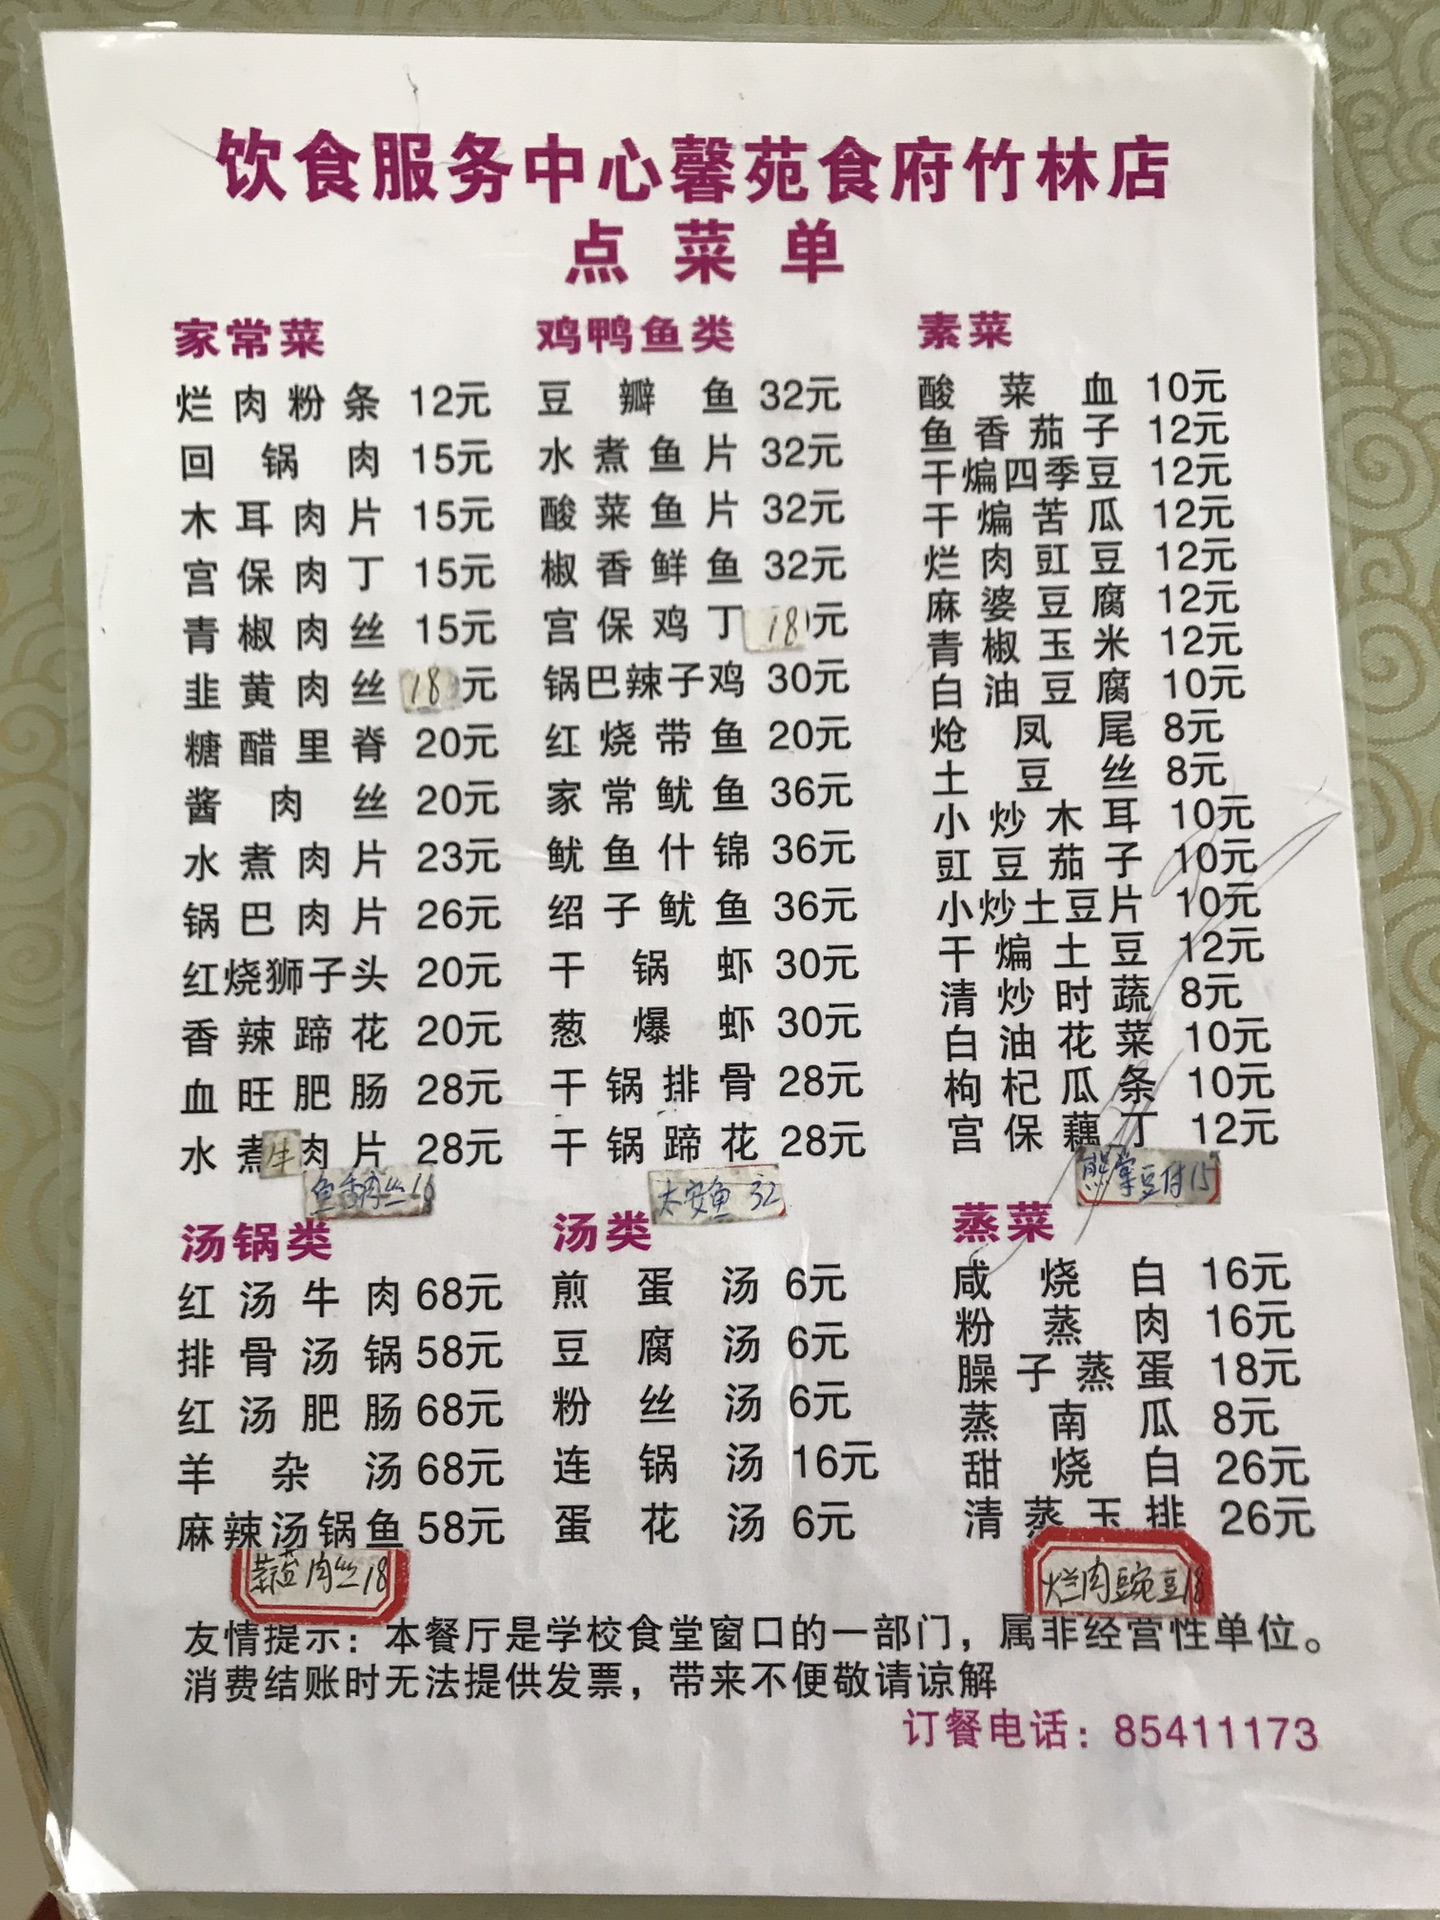 饮食服务中心馨苑食府竹林店
点菜单
家常菜
烂肉粉条 12元
回锅肉 15元
木耳肉片 15元
宫保肉丁 15元
青椒肉丝 15元
韭黄肉丝 18元
糖醋里脊 20元
酱肉丝 20元
水煮肉片 23元
锅巴肉片 26元
红烧狮子头 20元
香辣蹄花 20元
血旺肥肠 28元
水煮牛肉片 28元
鱼香肉丝16
鸡鸭鱼类
豆瓣鱼 32元
水煮鱼片 32元
酸菜鱼片 32元
椒香鲜鱼 32元
宫保鸡丁 18元
锅巴辣子鸡 30元
红烧带鱼 20元
家常鱿鱼 36元
鱿鱼什锦 36元
绍子鱿鱼 36元
干锅虾 30元
葱爆虾 30元
干锅排骨 28元
干锅蹄花 28元
太安鱼 32
素菜
酸菜血 10元
鱼香茄子 12元
干煸四季豆 12元
干煸苦瓜 12元
烂肉豇豆 12元
麻婆豆腐 12元
青椒玉米 12元
白油豆腐 10元
炝凤尾 8元
土豆丝 8元
小炒木耳 10元
豇豆茄子 10元
小炒土豆片 10元
干煸土豆 12元
清炒时蔬 8元
白油花菜 10元
枸杞瓜条 10元
宫保藕丁 12元
熊掌豆付15
汤锅类
红汤牛肉 68元
排骨汤锅 58元
红汤肥肠 68元
羊杂汤 68元
麻辣汤锅鱼 58元
肉丝18
汤类
煎蛋汤 6元
豆腐汤 6元
粉丝汤 6元
连锅汤 16元
蛋花汤 6元
蒸菜
咸烧白 16元
粉蒸肉 16元
臊子蒸蛋 18元
蒸南瓜 8元
甜烧白 26元
清蒸玉排 26元
烂肉豌豆18
友情提示：本餐厅是学校食堂窗口的一部门，属非经营性单位。
消费结账时无法提供发票，带来不便敬请谅解
订餐电话：85411173